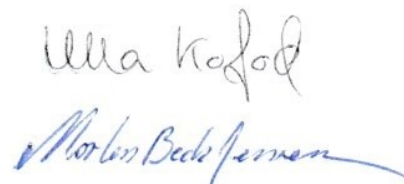 Ulla Kofod
Morten Beck Jensen